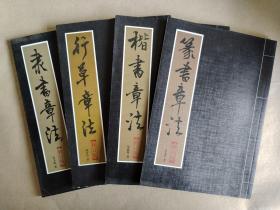 隶书章法
行草章法
楷书章法
篆书章法